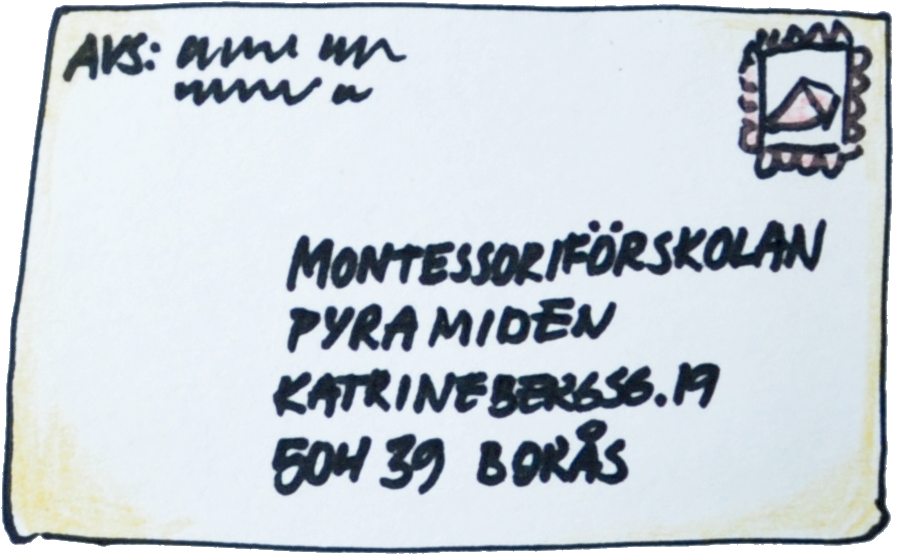 AVS:
MONTESSORIFÖRSKOLAN
PYRAMIDEN
KATRINEBERGSG. 19
504 39 BORÅS